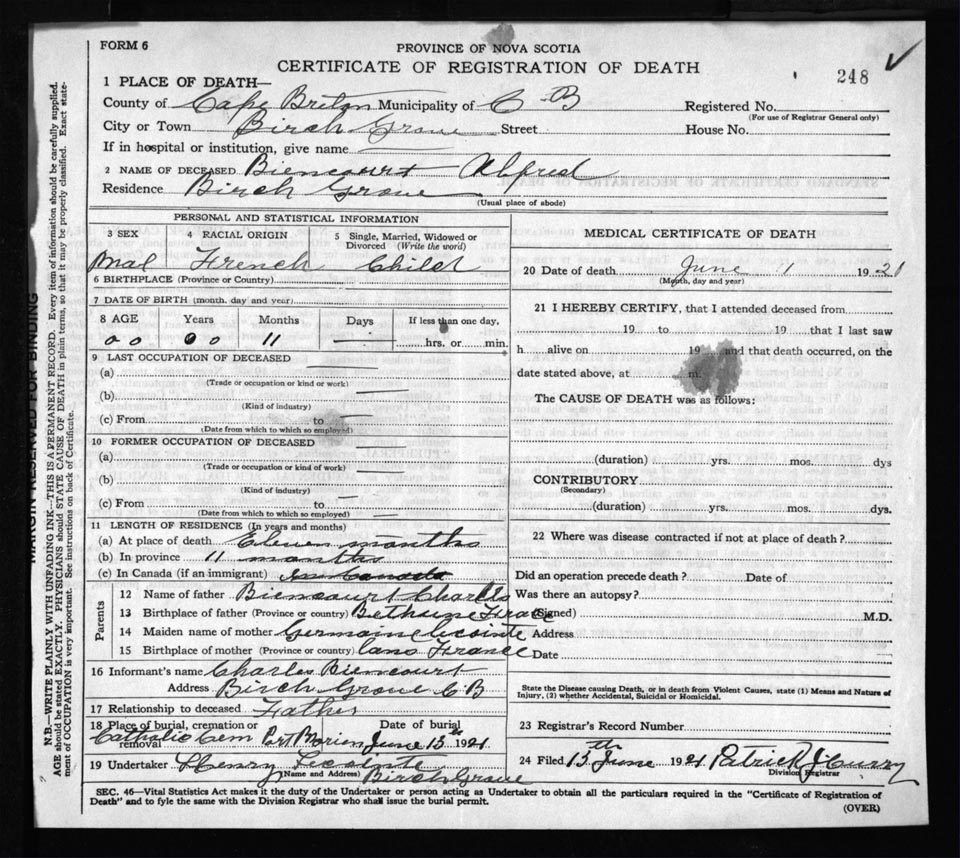 FORM 6
PROVINCE OF NOVA SCOTIA
CERTIFICATE OF REGISTRATION OF DEATH
248
1 PLACE OF DEATH—
County of Cape Breton Municipality of C B Registered No.
(For use of Registrar General only)
City or Town Birch Grove Street House No.
If in hospital or institution, give name
2 NAME OF DECEASED Biencourt Alfred
Residence Birch Grove
(Usual place of abode)
PERSONAL AND STATISTICAL INFORMATION
3 SEX 4 RACIAL ORIGIN 5 Single, Married, Widowed or Divorced (Write the word)
Mal French Child
6 BIRTHPLACE (Province or Country)
7 DATE OF BIRTH (month, day and year)
8 AGE Years Months Days If less than one day,
00 00 11 — hrs. or min.
9 LAST OCCUPATION OF DECEASED
(a)
(Trade or occupation or kind or work)
(b)
(Kind of industry)
(c) From to
(Date from which to which so employed)
10 FORMER OCCUPATION OF DECEASED
(a)
(Trade or occupation or kind of work)
(b)
(Kind of industry)
(c) From to
(Date from which to which so employed)
11 LENGTH OF RESIDENCE (In years and months)
(a) At place of death Eleven months
(b) In province 11 months
(c) In Canada (if an immigrant) Canada
Parents
12 Name of father Biencourt Charles
13 Birthplace of father (Province or country) Bethune France
14 Maiden name of mother Germaine
15 Birthplace of mother (Province or country) France
16 Informant's name Charles Biencourt
Address Birch Grove C B
17 Relationship to deceased Father
18 Place of burial, cremation or removal Date of burial
Catholic Cem Port Morien June 13th 1921
19 Undertaker Henry
(Name and Address) Birch Grove
MEDICAL CERTIFICATE OF DEATH
20 Date of death June 1921
(Month, day and year)
21 I HEREBY CERTIFY, that I attended deceased from
19 to 19 that I last saw
h alive on 19 and that death occurred, on the
date stated above, at m.
The CAUSE OF DEATH was as follows:
(duration) yrs. mos. dys
CONTRIBUTORY
(Secondary)
(duration) yrs. mos. dys.
22 Where was disease contracted if not at place of death?
Did an operation precede death? Date of
Was there an autopsy?
(Signed) M.D.
Address
Date
State the Disease causing Death, or in death from Violent Causes, state (1) Means and Nature of
Injury, (2) whether Accidental, Suicidal or Homicidal.
23 Registrar's Record Number
24 Filed 13th June 1921 Patrick J Curry
Division Registrar
SEC. 46—Vital Statistics Act makes it the duty of the Undertaker or person acting as Undertaker to obtain all the particulars required in the "Certificate of Registration of
Death" and to fyle the same with the Division Registrar who shall issue the burial permit.
(OVER)
MARGIN RESERVED FOR BINDING
N.B.—WRITE PLAINLY WITH UNFADING INK—THIS IS A PERMANENT RECORD. Every item of information should be carefully supplied.
AGE should be stated EXACTLY. PHYSICIANS should STATE CAUSE OF DEATH in plain terms, so that it may be properly classified. Exact state-
ment of OCCUPATION is very important. See instructions on back of Certificate.